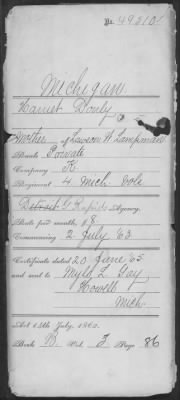 No. 49810
Michigan
Harriet Douly
Mother of Lawson W Lampman
Rank Private
Company K
Regiment 4 Mich Vols
Detroit G Rapids Agency.
Rate per month, 8
Commencing 2 July '63
Certificate dated 20 June '65
and sent to Myls L Gay
Howell
Mich
Act 14th July, 1862.
Book Vol. Page 86